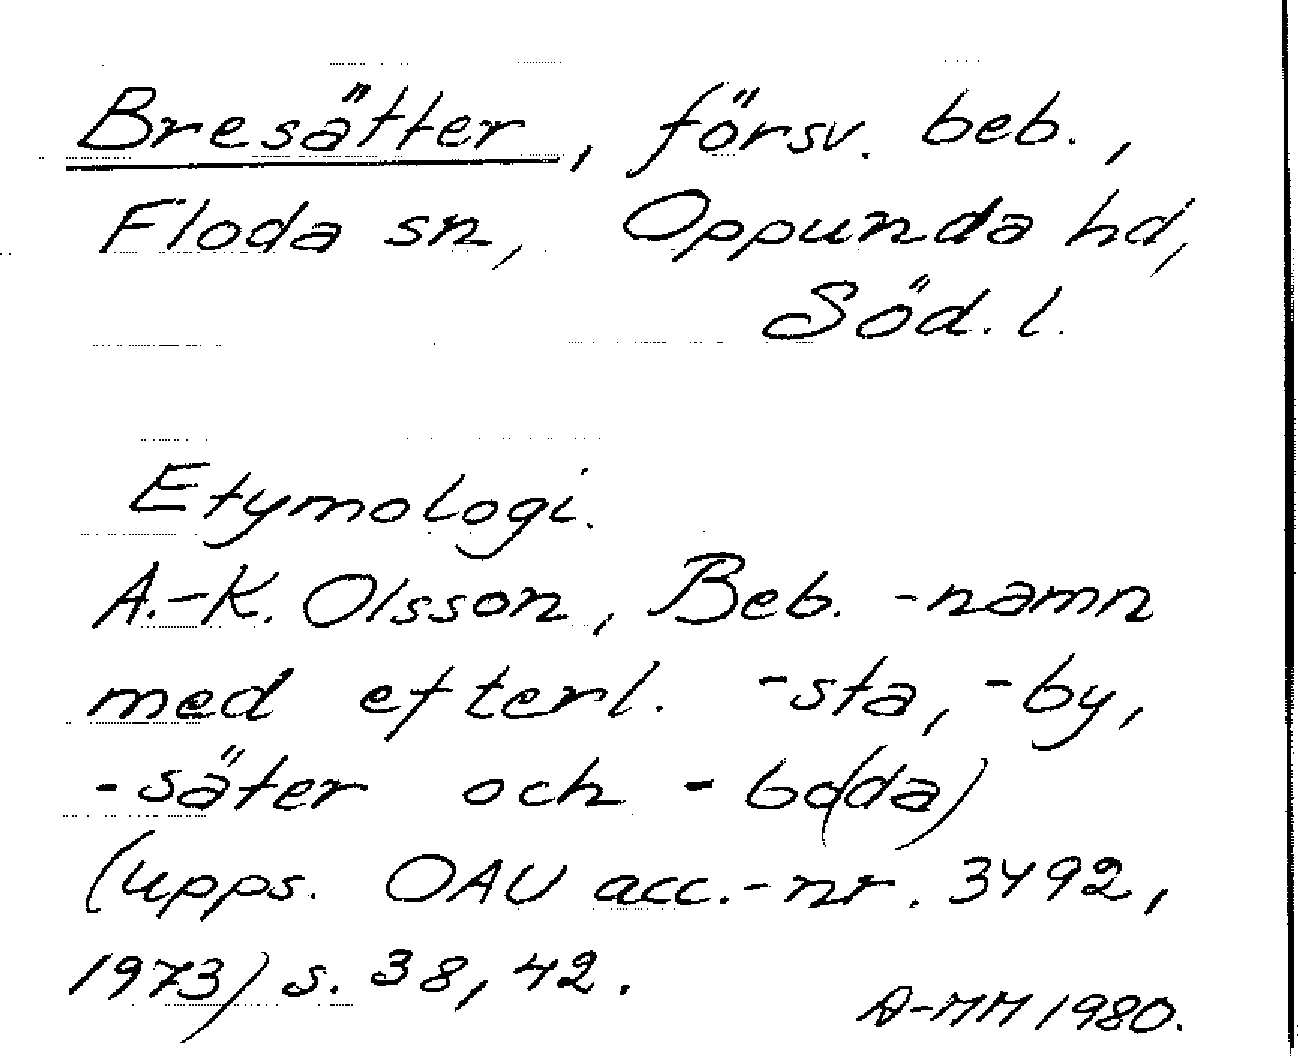 Bresätter, försv. beb.,
Floda sn, Oppunda hd,
Söd. l.
Etymologi.
A.-K. Olsson, Beb. -namn
med efterl. -sta, -by,
-säter och -bo(da)
(upps. OAU acc.-nr. 3492,
1973) s. 38, 42.
A-MM 1980.